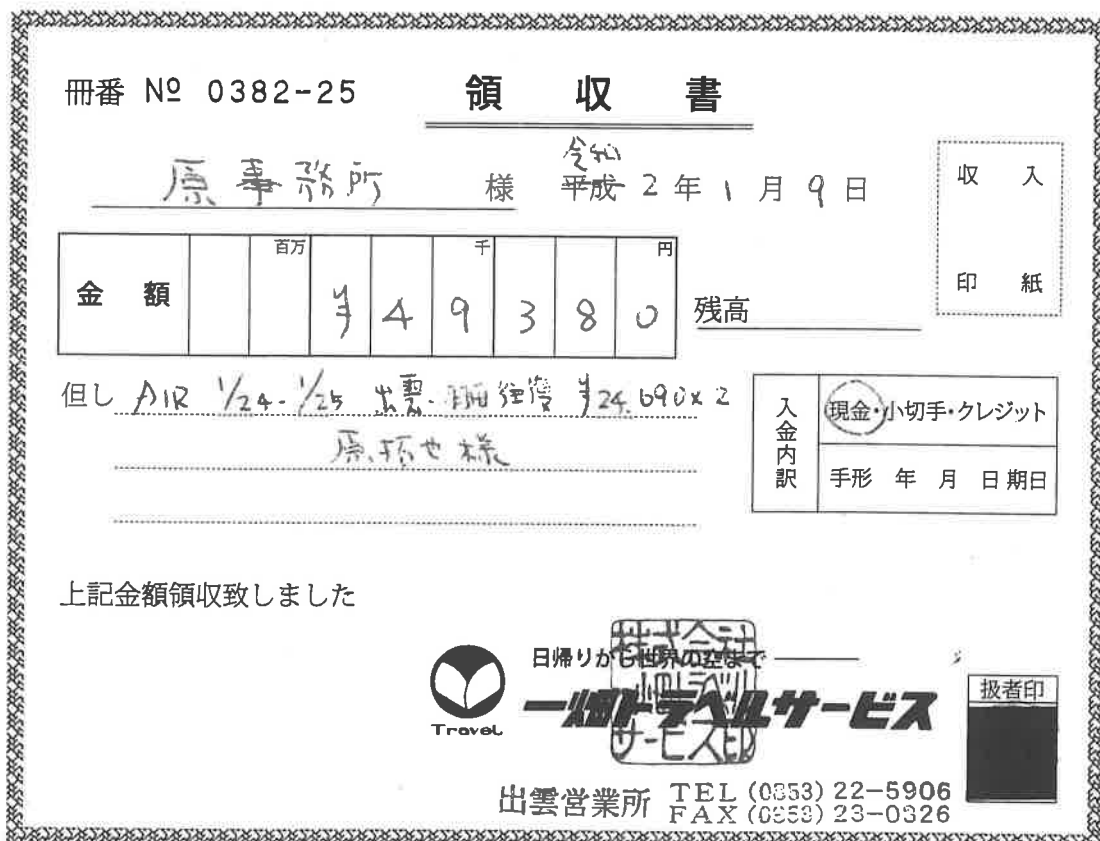 冊番 № 0382-25
領収書
原事務所 様
令和
平成 2年1月9日
収入
印紙
金額 百万 千 円
¥49380
残高
但し AIR 1/24-1/25 出雲・羽田往復 ¥24,690×2
原 也様
入金内訳
現金・小切手・クレジット
手形 年 月 日期日
上記金額領収致しました
日帰りから世界の空まで
一畑トラベルサービス
Travel
株式会社
一畑トラベル
サービス印
扱者印
出雲営業所 TEL (0853) 22-5906
FAX (0853) 23-0326